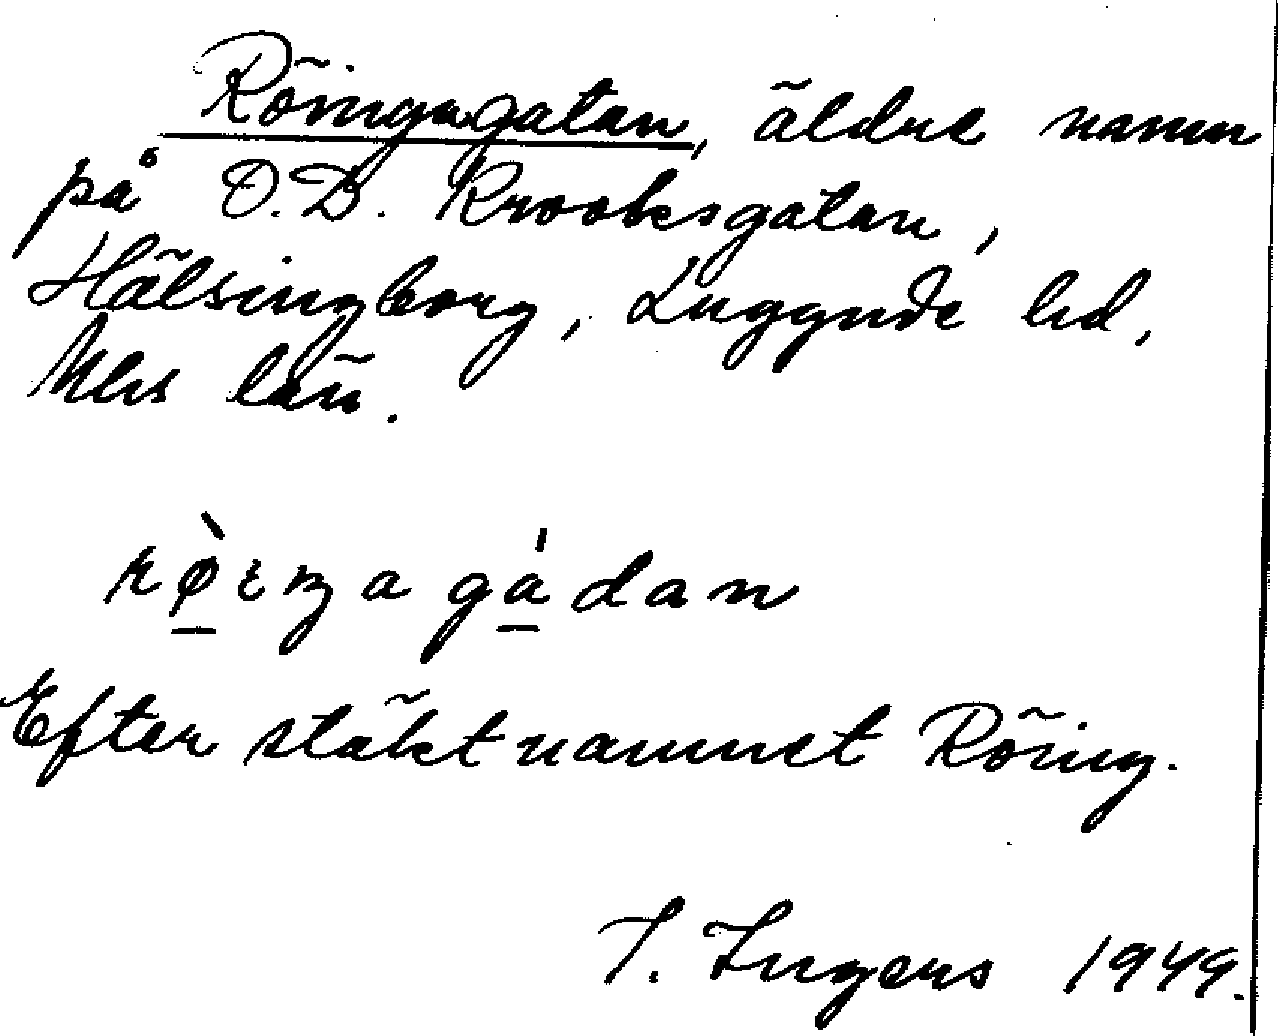 Röingagatan, äldre namn
på O.D. Krooksgatan,
Hälsingborg, Luggude hd,
Mhs län.
rø̀ıŋagádan
Efter släktnamnet Röing.
I. Ingers 1949.